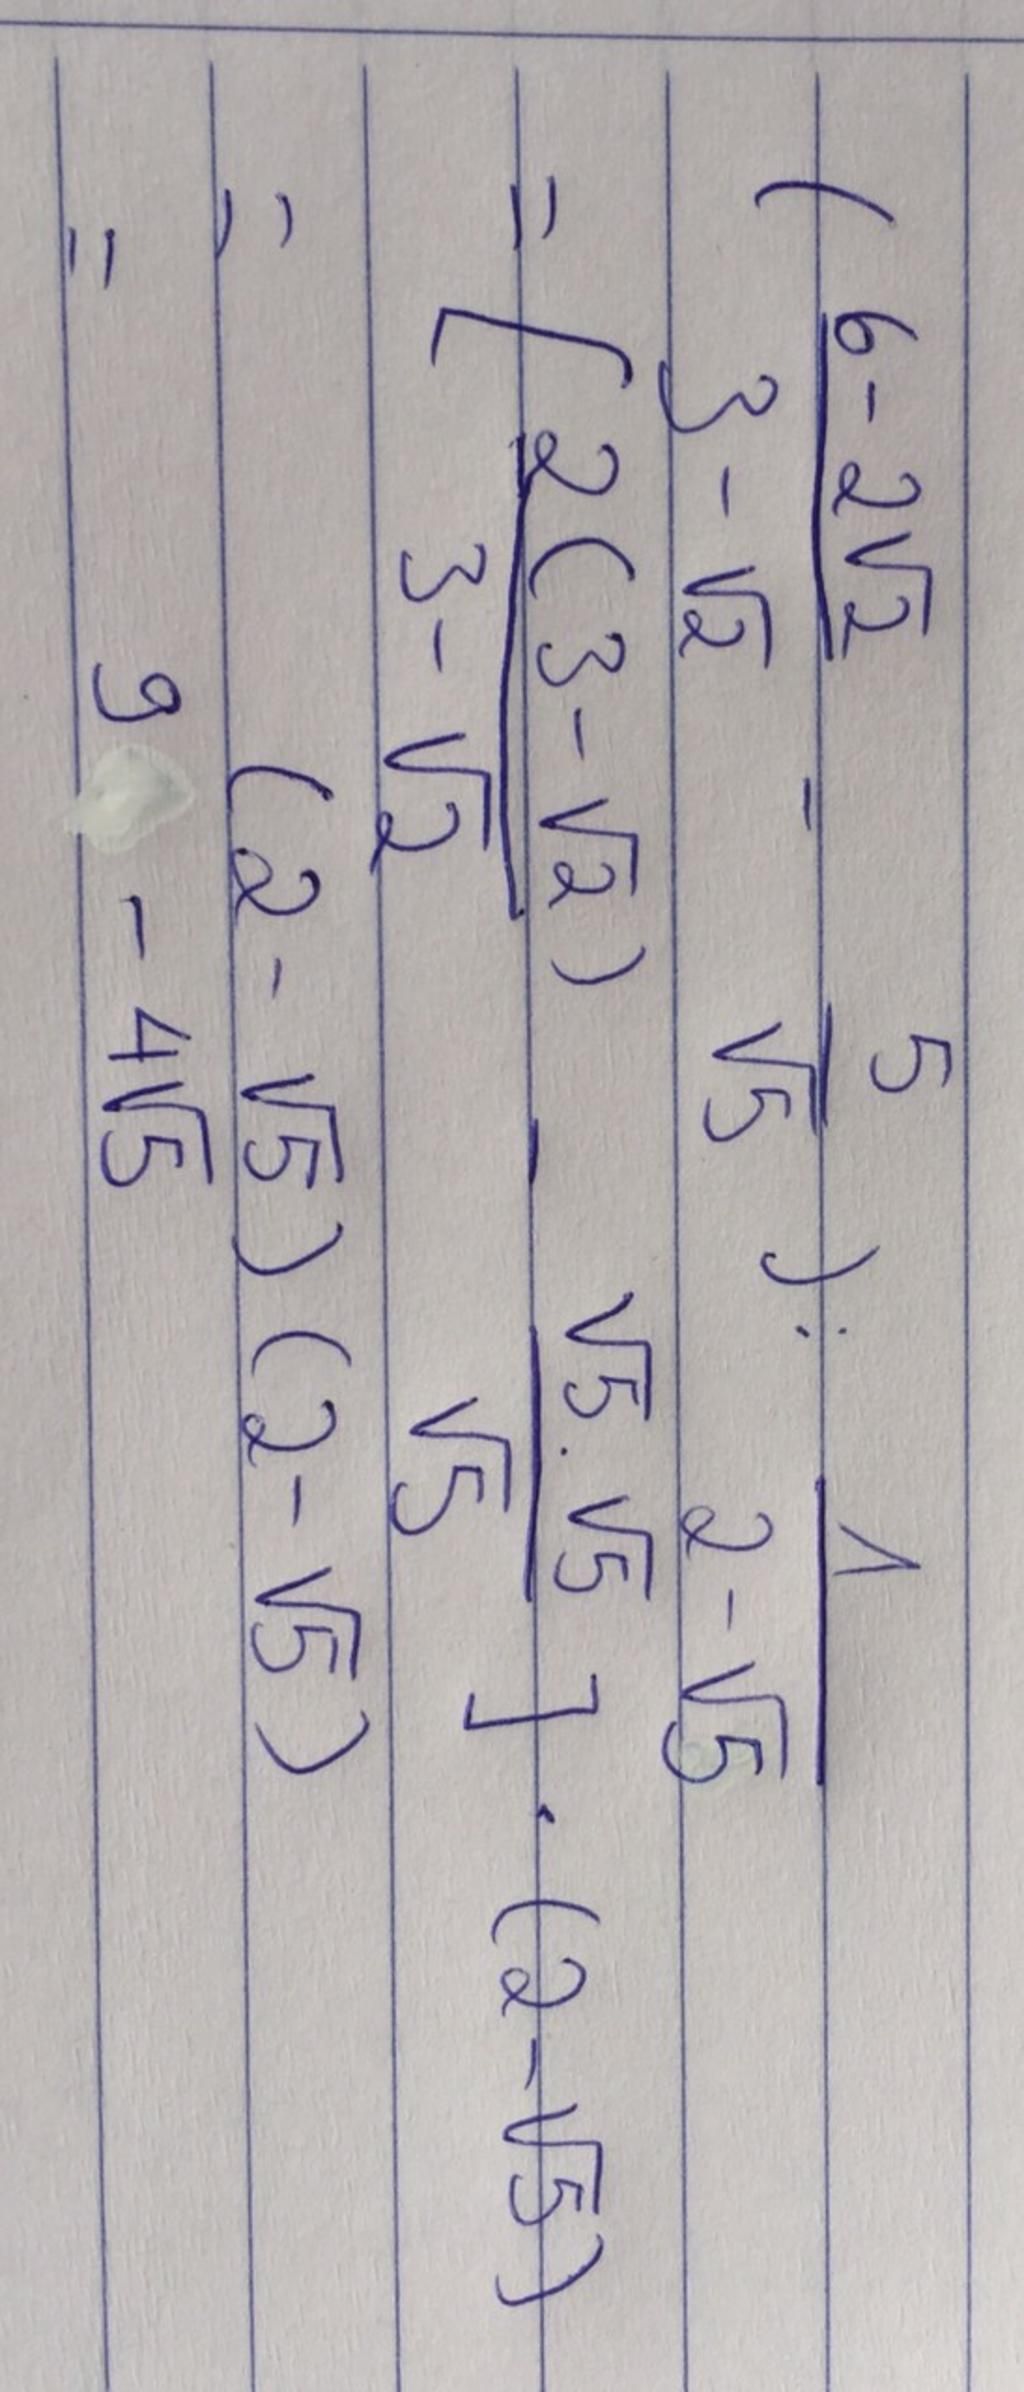 ( (6 - 2√2) / (3 - √2) - 5 / √5 ) : 1 / (2 - √5)
= [ 2(3 - √2) / (3 - √2) - √5 . √5 / √5 ] . (2 - √5)
= (2 - √5) (2 - √5)
= 9 - 4√5